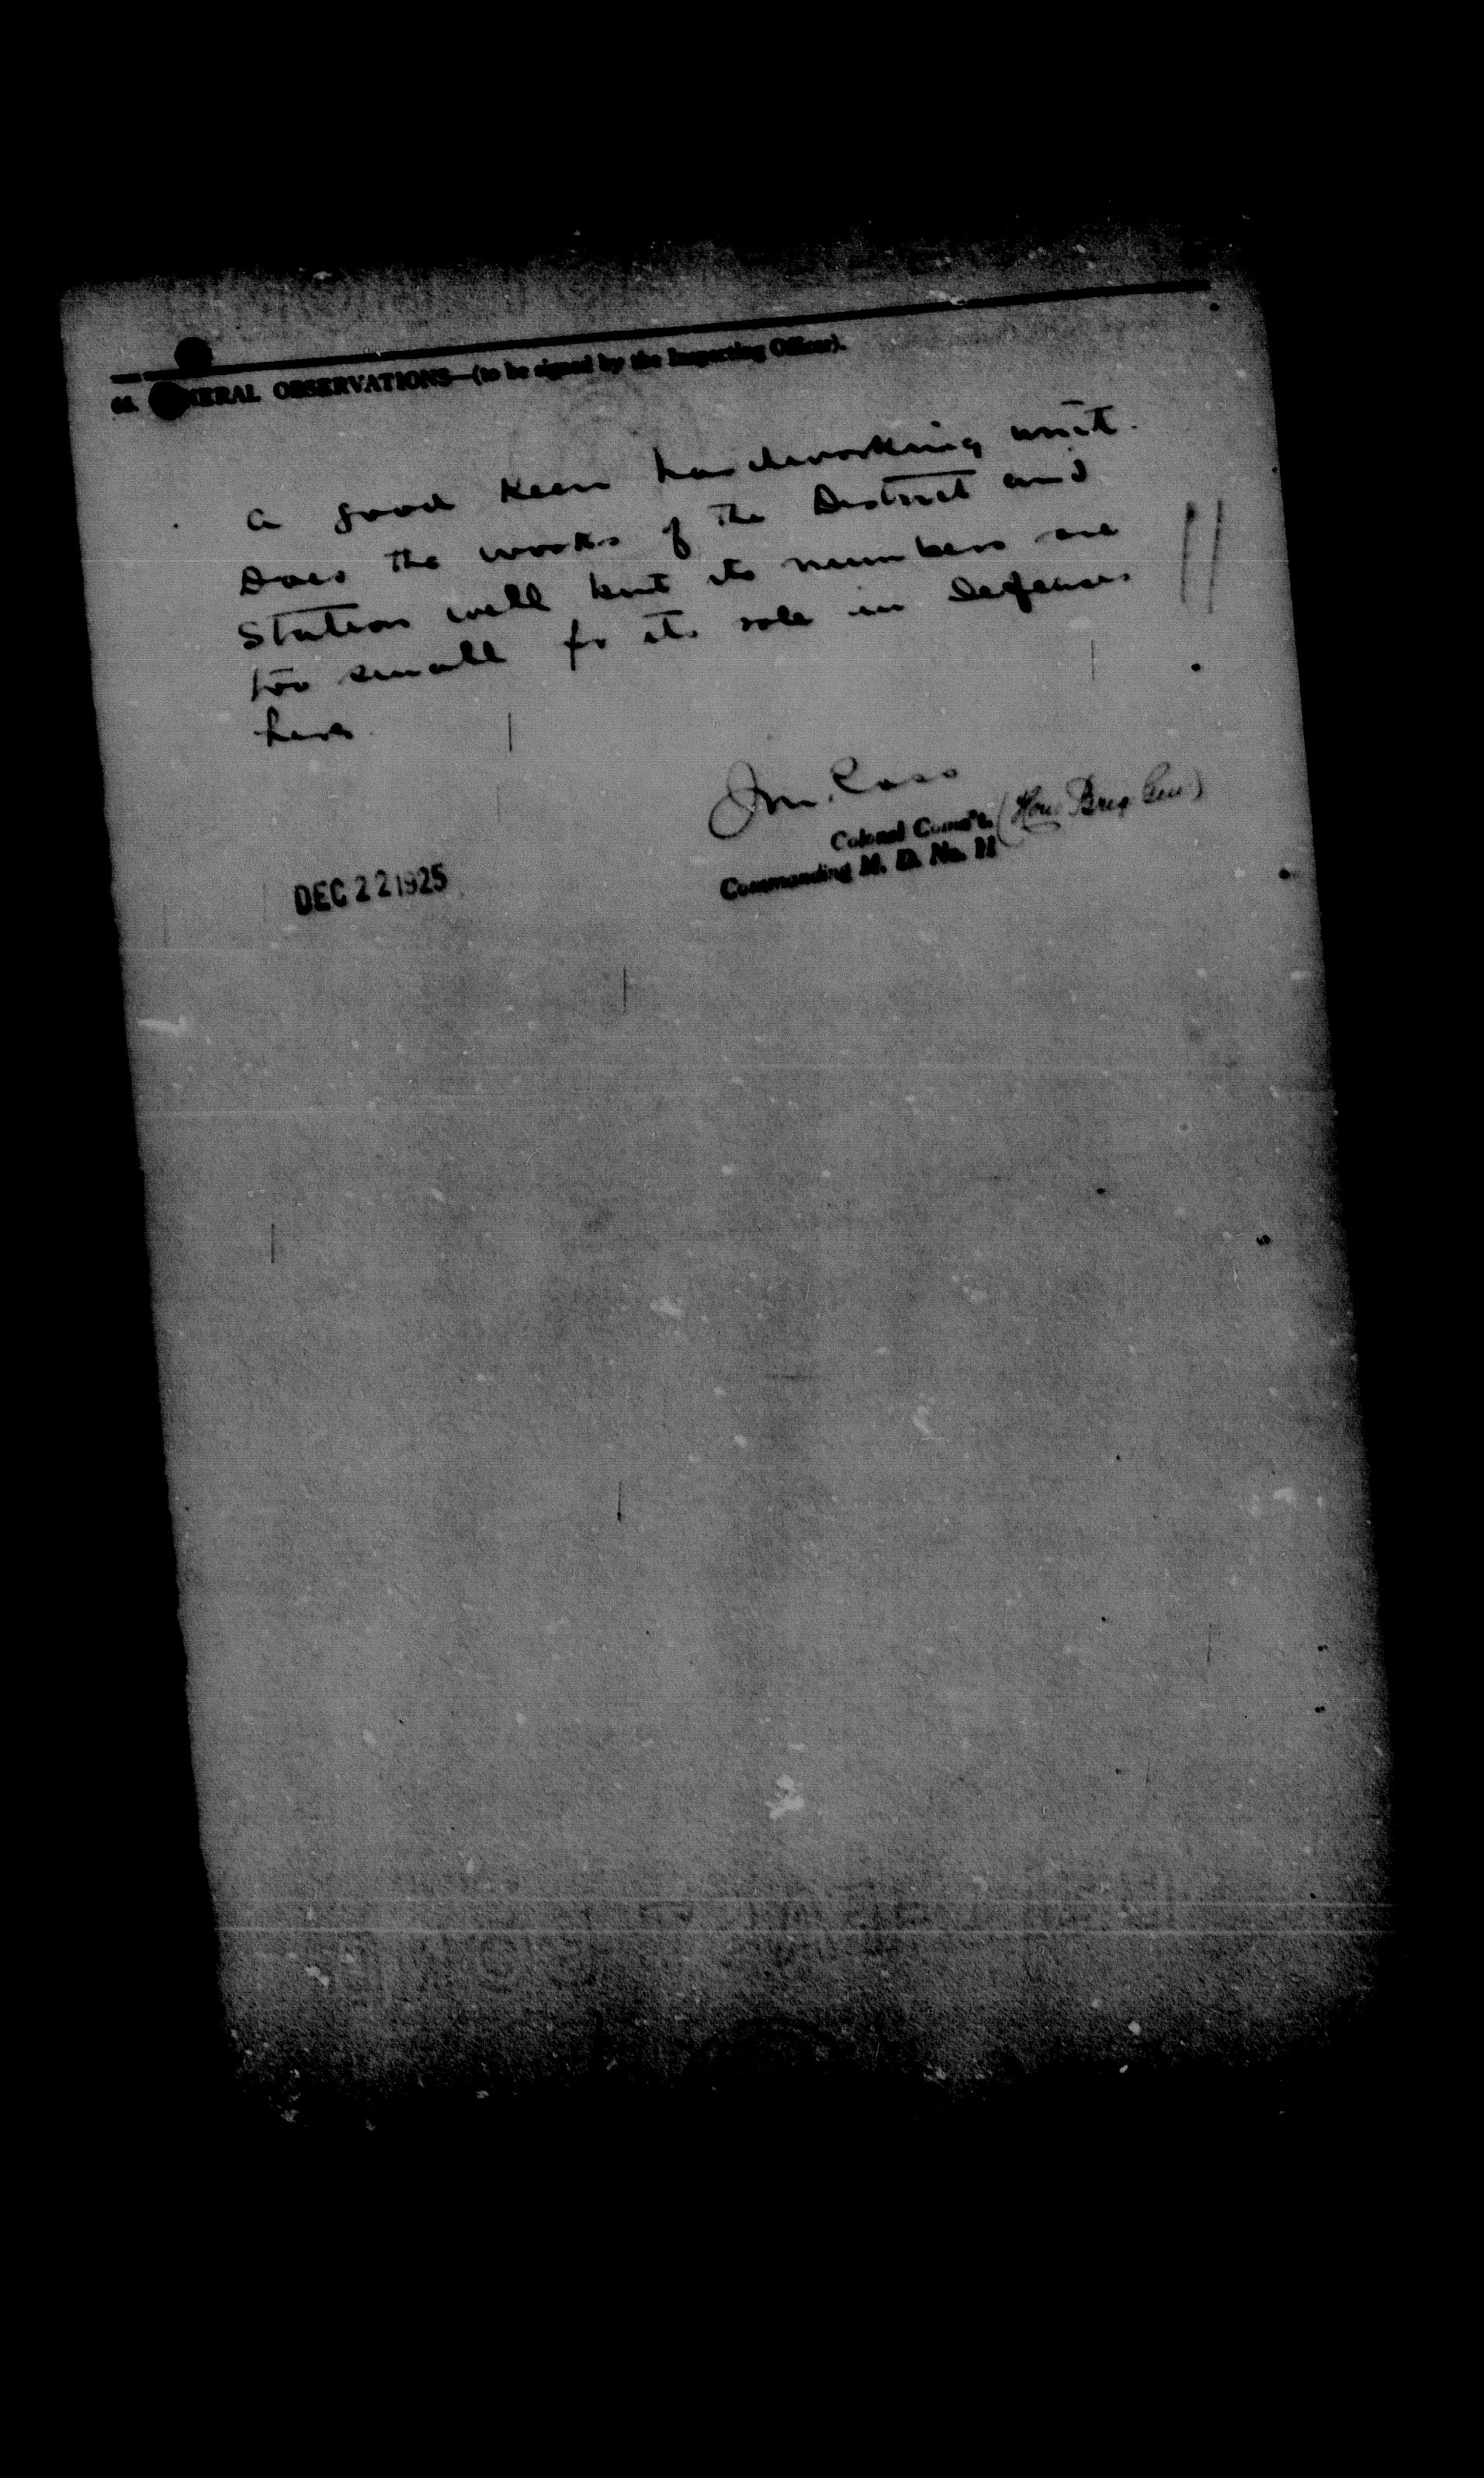 66. GENERAL OBSERVATIONS—(to be signed by the Inspecting Officer).
A good keen hardworking unit.
Does the works of the District and
Station well but its numbers are
too small for its role in Defences
here
J.M. Ross
Colonel Comd't. (Hon. Brig Gen)
Commanding M. D. No. 11
DEC 22 1925